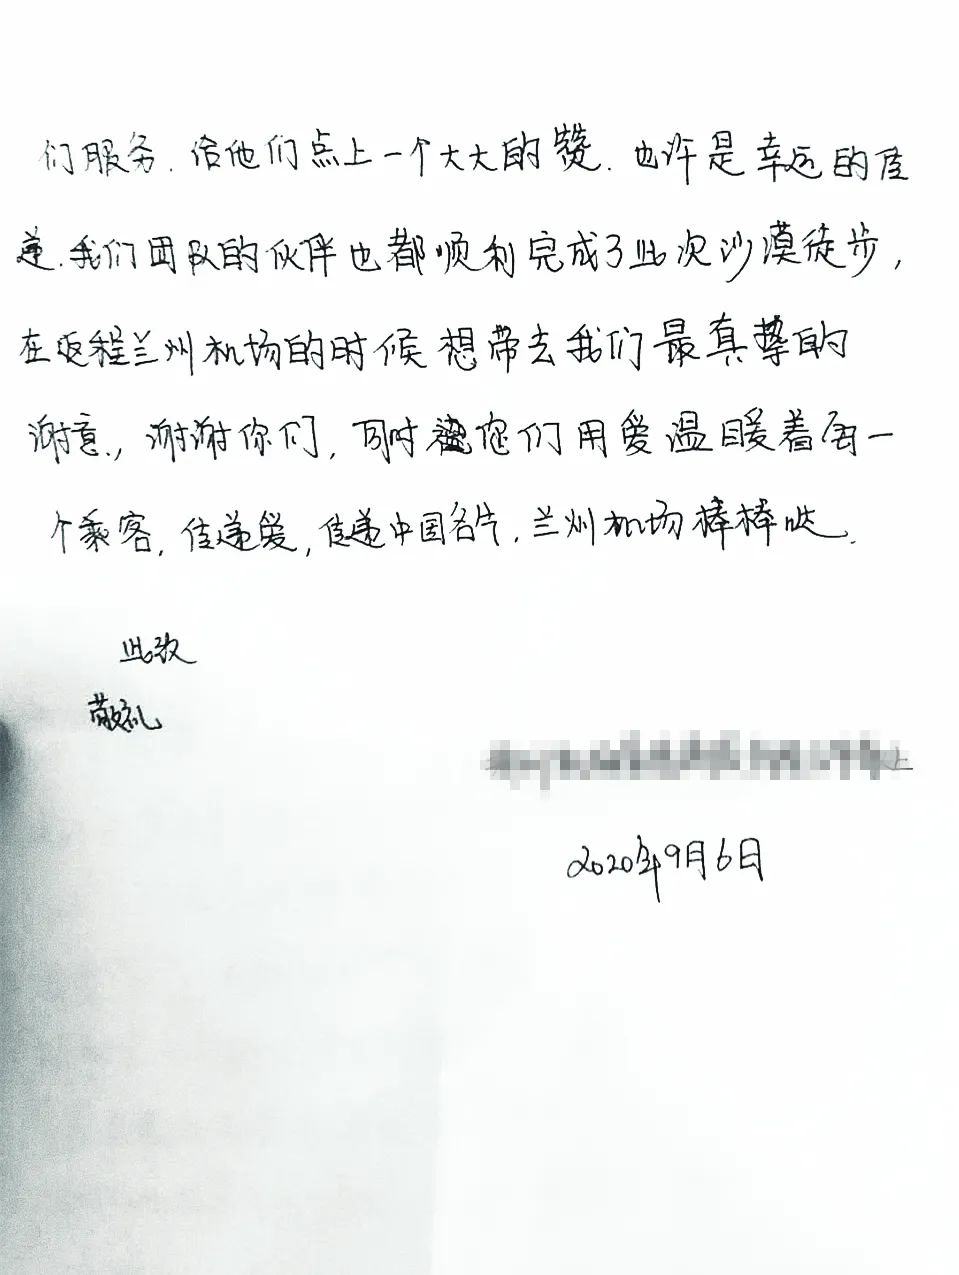 们服务.给他们点上一个大大的赞.也许是幸运的传
递.我们团队的伙伴也都顺利完成了此次沙漠徒步,
在返程兰州机场的时候想带去我们最真挚的
谢意,谢谢你们,同时您们用爱温暖着每一
个乘客,传递爱,传递中国名片.兰州机场棒棒哒.
此致
敬礼
上
2020年9月6日